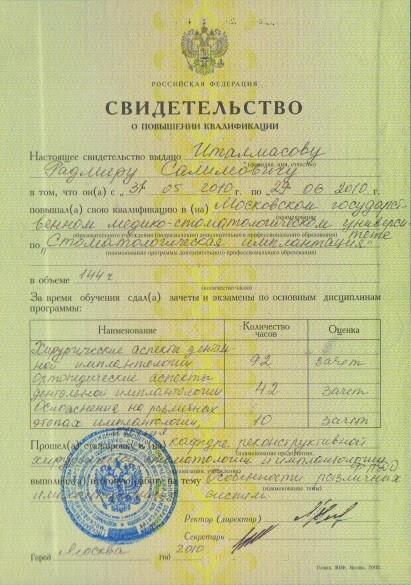 РОССИЙСКАЯ ФЕДЕРАЦИЯ
СВИДЕТЕЛЬСТВО
О ПОВЫШЕНИИ КВАЛИФИКАЦИИ
Настоящее свидетельство выдано Италмасову
(фамилия, имя, отчество)
Радмиру Салимовичу
в том, что он(а) с „31 05 2010 г. по „27 06 2010 г.
повышал(а) свою квалификацию в (на) Московском государст-
(наименование)
венном медико-стоматологическом универси-
тете
по „Стоматологическая имплантация"
(наименование программы дополнительного профессионального образования)
в объеме 144 ч
(количество часов)
За время обучения сдал(а) зачеты и экзамены по основным дисциплинам
программы:
Наименование Количество часов Оценка
Хирургические аспекты денталь-
ной имплантологии 92 зачет
Ортопедические аспекты
дентальной имплантологии 42 зачет
Осложнение на различных
этапах имплантологии 10 зачет
Прошел(а) стажировку в (на) кафедре реконструктивной
хирургической стоматологии и имплантологии
ФПДО
выполнил(а) итоговую работу на тему Особенности различных
(наименование темы)
имплантационных систем
Ректор (директор)
Секретарь
Город Москва год 2010